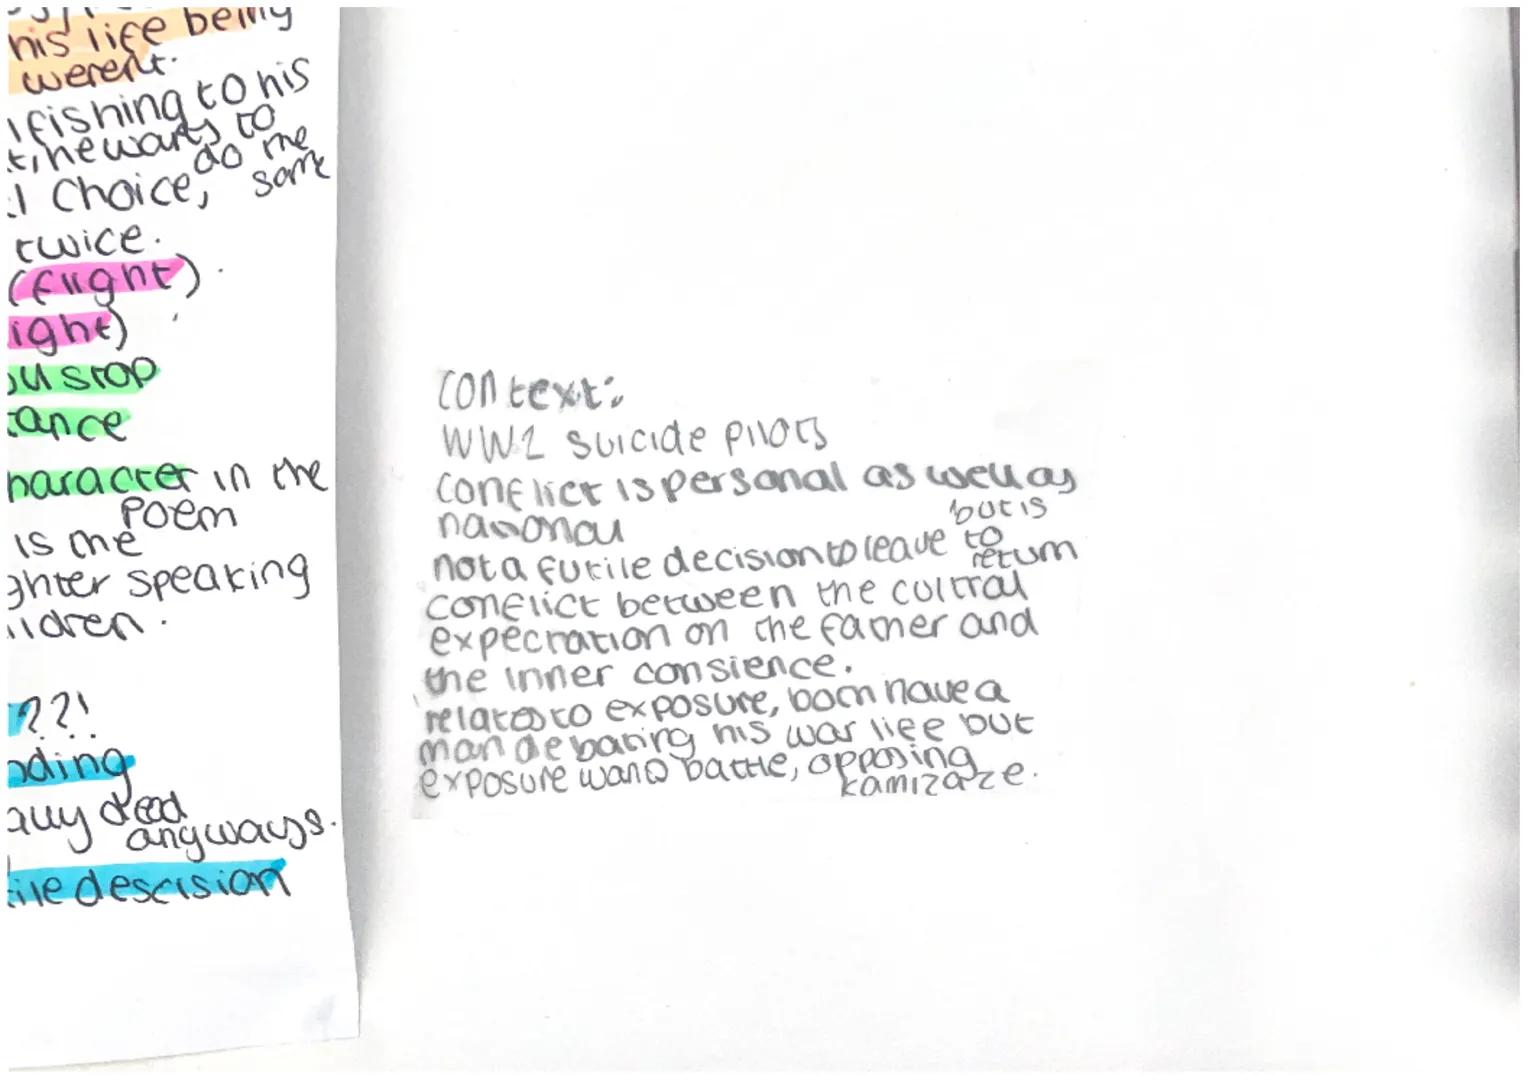 his life being
werent.
fishing to his
he wants to
do the
Choice, same
twice.
(flight).
ight)
ou stop
tance
haracter in the
poem
is the
ghter speaking
ildren.
??!
ding
ally dead
anyways.
ile descision
context:
WW2 suicide pilots
conflict is personal as well as
national
but is
not a futile decision to leave to
return
conflict between the cultral
expectation on the father and
the inner consience.
relates to exposure, both have a
man debating his war life but
exposure wants battle, opposing
kamizaze.